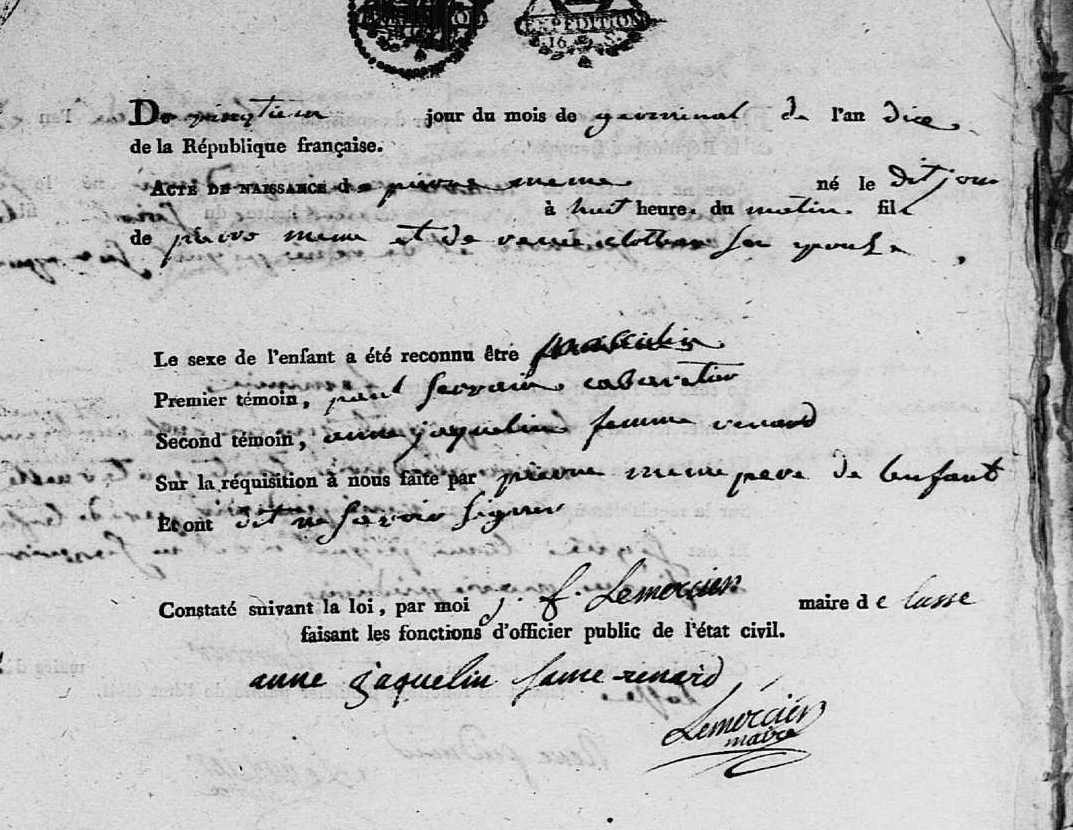 EXPÉDITION
16 S.
Du vingtieu jour du mois de germinal de l'an dice
de la République française.
ACTE DE NAISSANCE de pierre meme né le dit jour
à huit heure du matin. fils
de pierre meme et de renée son
Le sexe de l'enfant a été reconnu être masculin
Premier témoin, paul cabaretier
Second témoin, anne jaquelin femme renard
Sur la réquisition à nous faite par pierre meme pere de lenfant
Et ont dit ne savoir signer
Constaté suivant la loi, par moi j. f. Lemercier maire de lasse
faisant les fonctions d'officier public de l'état civil.
anne jaquelin fame renard
Lemercier
maire